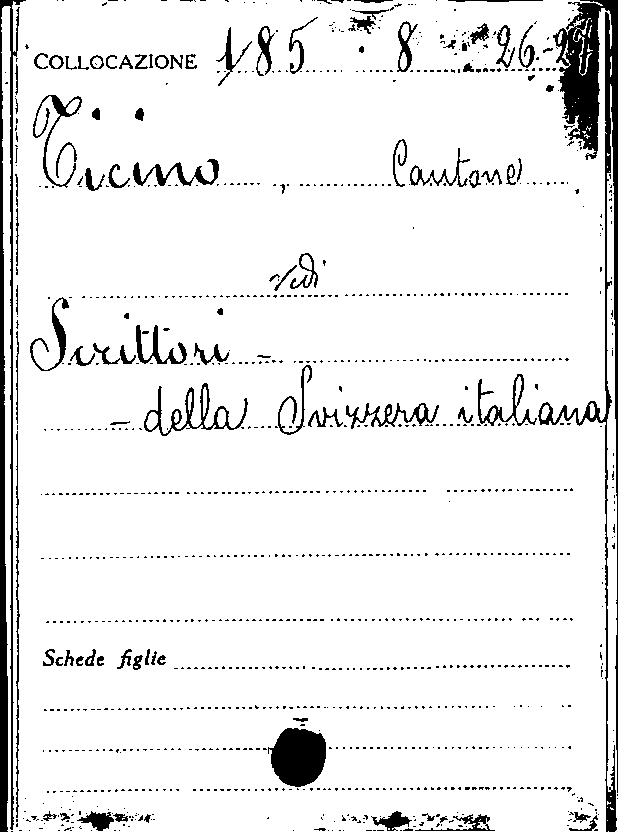 COLLOCAZIONE 185 . 8 . 26-27
Ticino, Cantone
vedi
Scrittori -
- della Svizzera italiana
Schede figlie